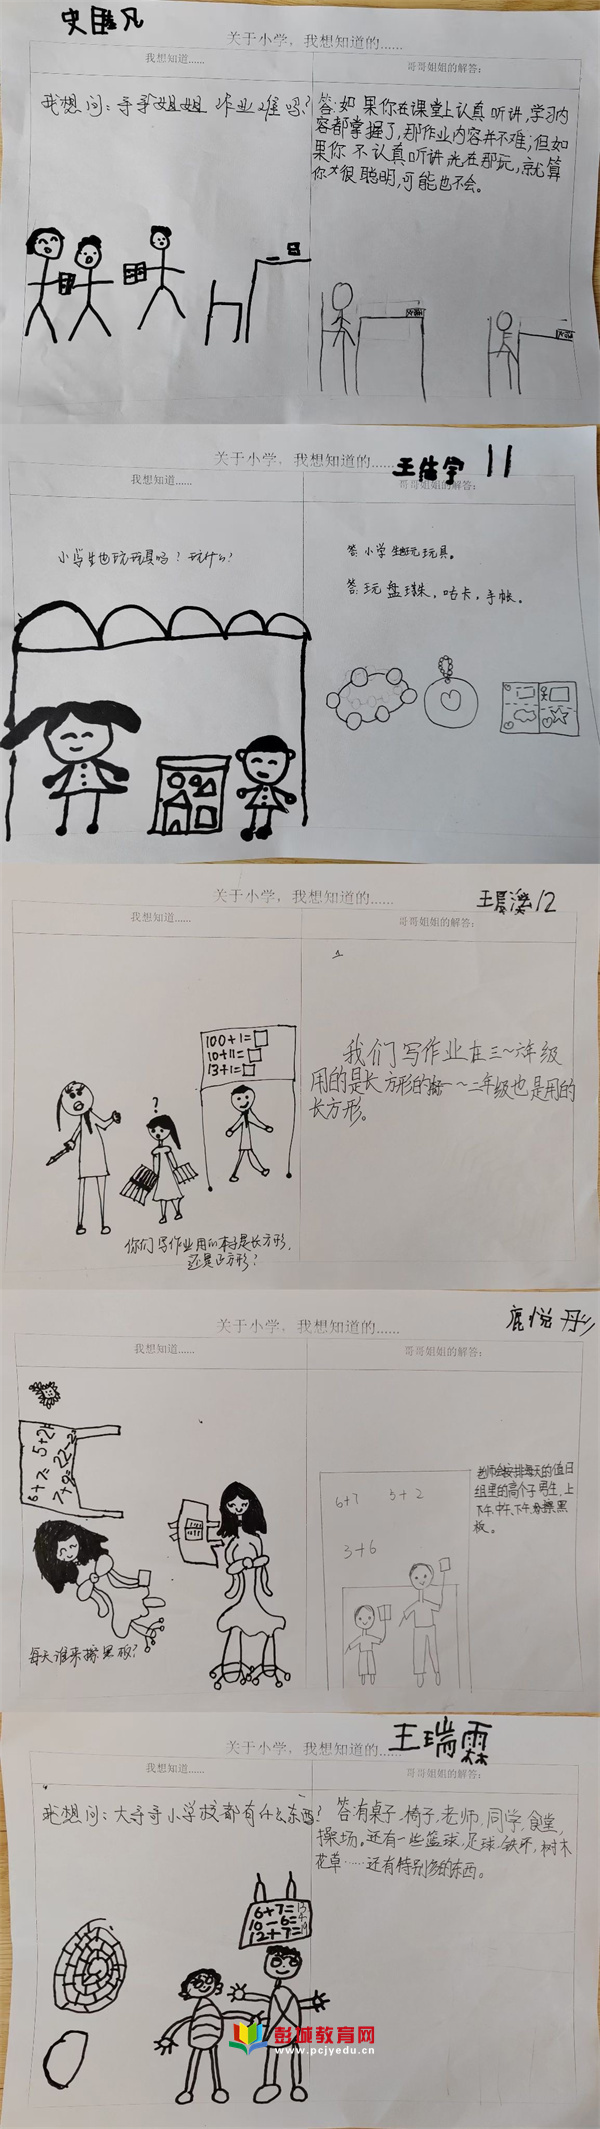 史臣凡
关于小学，我想知道的……
我想知道……
哥哥姐姐的解答：
我想问：哥哥姐姐 作业难吗？
答：如果你在课堂上认真听讲，学习内
容都掌握了，那作业内容并不难；但如
果你不认真听讲光在那玩，就算
你很聪明，可能也不会。
关于小学，我想知道的……
11
我想知道……
哥哥姐姐的解答：
小学生也玩玩具吗？玩什么？
答：小学生也玩玩具。
答：玩盘珠，咕卡，手帐。
关于小学，我想知道的……
12
我想知道……
哥哥姐姐的解答：
100+1=
10+11=
13+1=
?
你们写作业用的本子是长方形，
还是正方形？
我们写作业在三~六年级
用的是长方形的 一~二年级也是用的
长方形。
关于小学，我想知道的……
鹿悦彤
我想知道……
哥哥姐姐的解答：
每天谁来擦黑板？
6+7 5+2
3+6
老师会安排每天的值日
组里的高个子男生，上
午、中午、下午擦黑
板。
关于小学，我想知道的……
王瑞霖
我想知道……
哥哥姐姐的解答：
我想问：大哥哥小学校都有什么东西？
答：有桌子、椅子，老师，同学，食堂，
操场。还有一些篮球，足球，铁环，树木
花草……还有特别多的东西。
6+7=13
10-6=4
12+7=19
彭城教育网
www.pcjyedu.cn